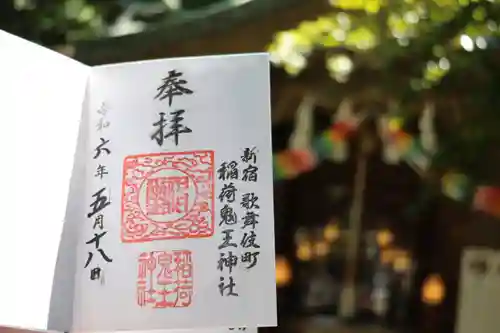 奉拝
新宿 歌舞伎町
稲荷鬼王神社
令和六年五月十八日
稲荷
鬼王
神社